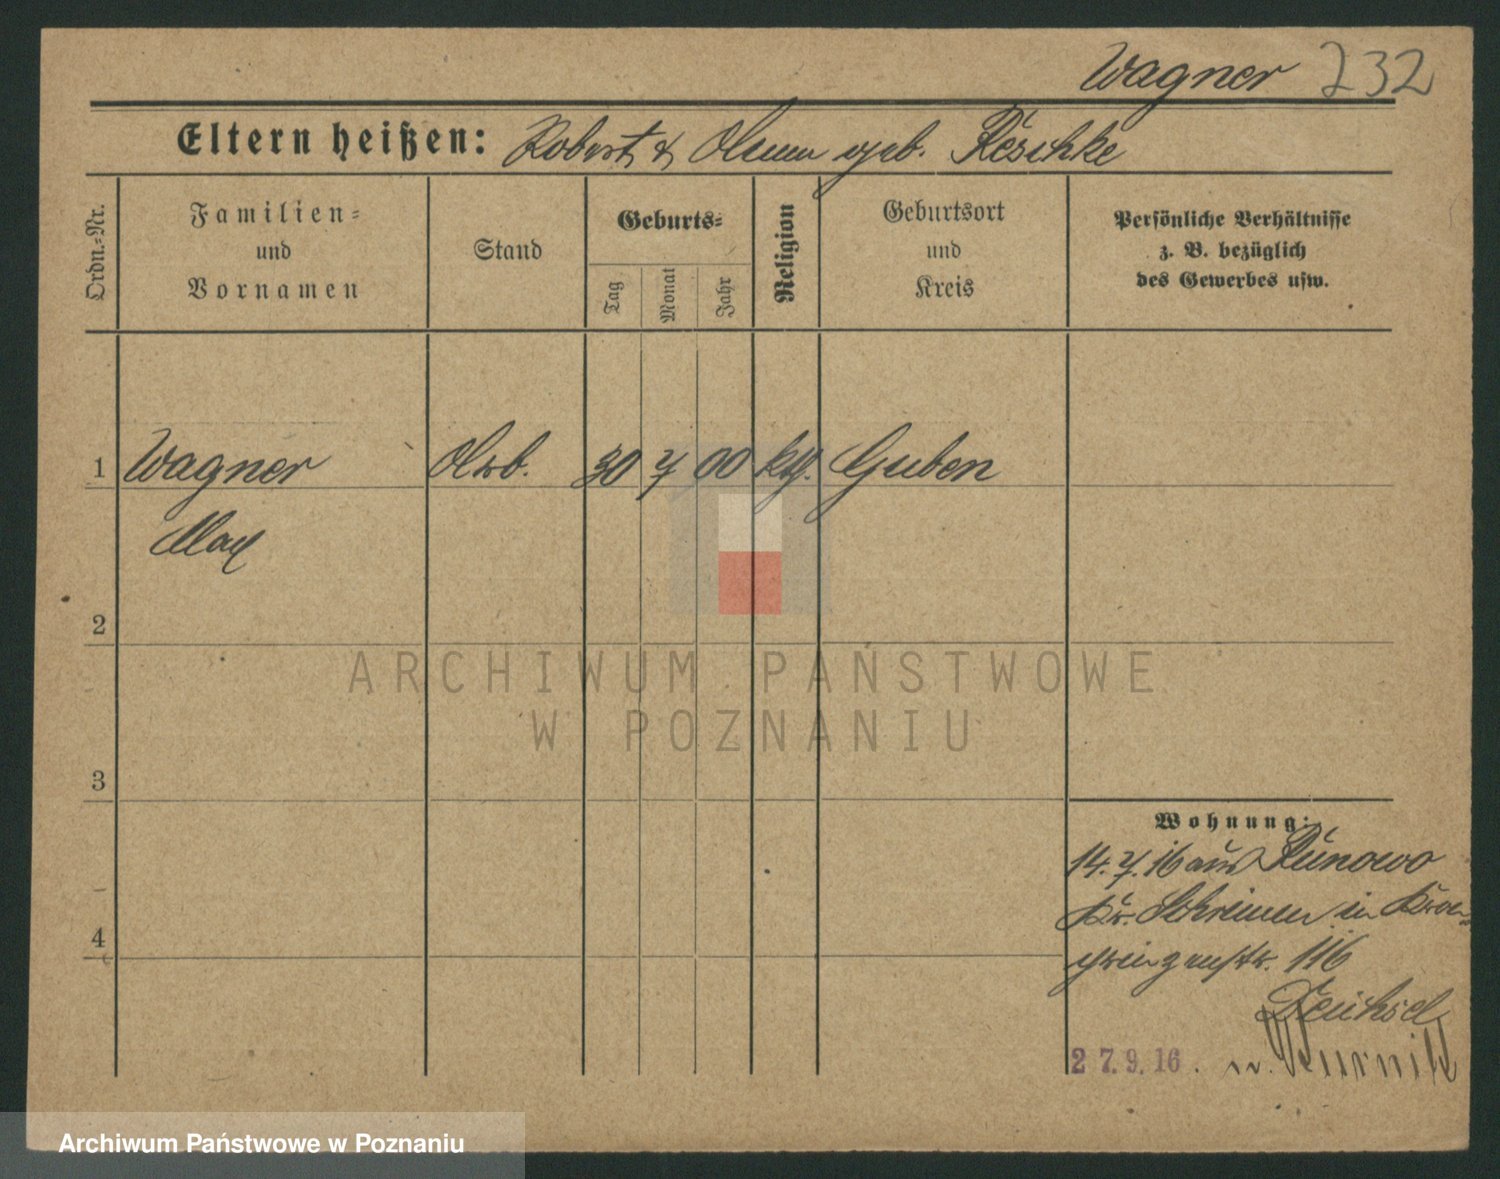 Wagner 232
Eltern heißen: Robert & geb. Reschke
Ordn.-Nr.
Familien-
und
Vornamen
Stand
Geburts-
Tag
Monat
Jahr
Religion
Geburtsort
und
Kreis
Persönliche Verhältnisse
z. B. bezüglich
des Gewerbes usw.
1 Wagner Arb. 30 7 00 kth. Guben
Max
2
ARCHIWUM PAŃSTWOWE
W POZNANIU
3
Wohnung:
14.7.16 aus Runowo
Kr. in
4
116
27.9.16. n.
Archiwum Państwowe w Poznaniu